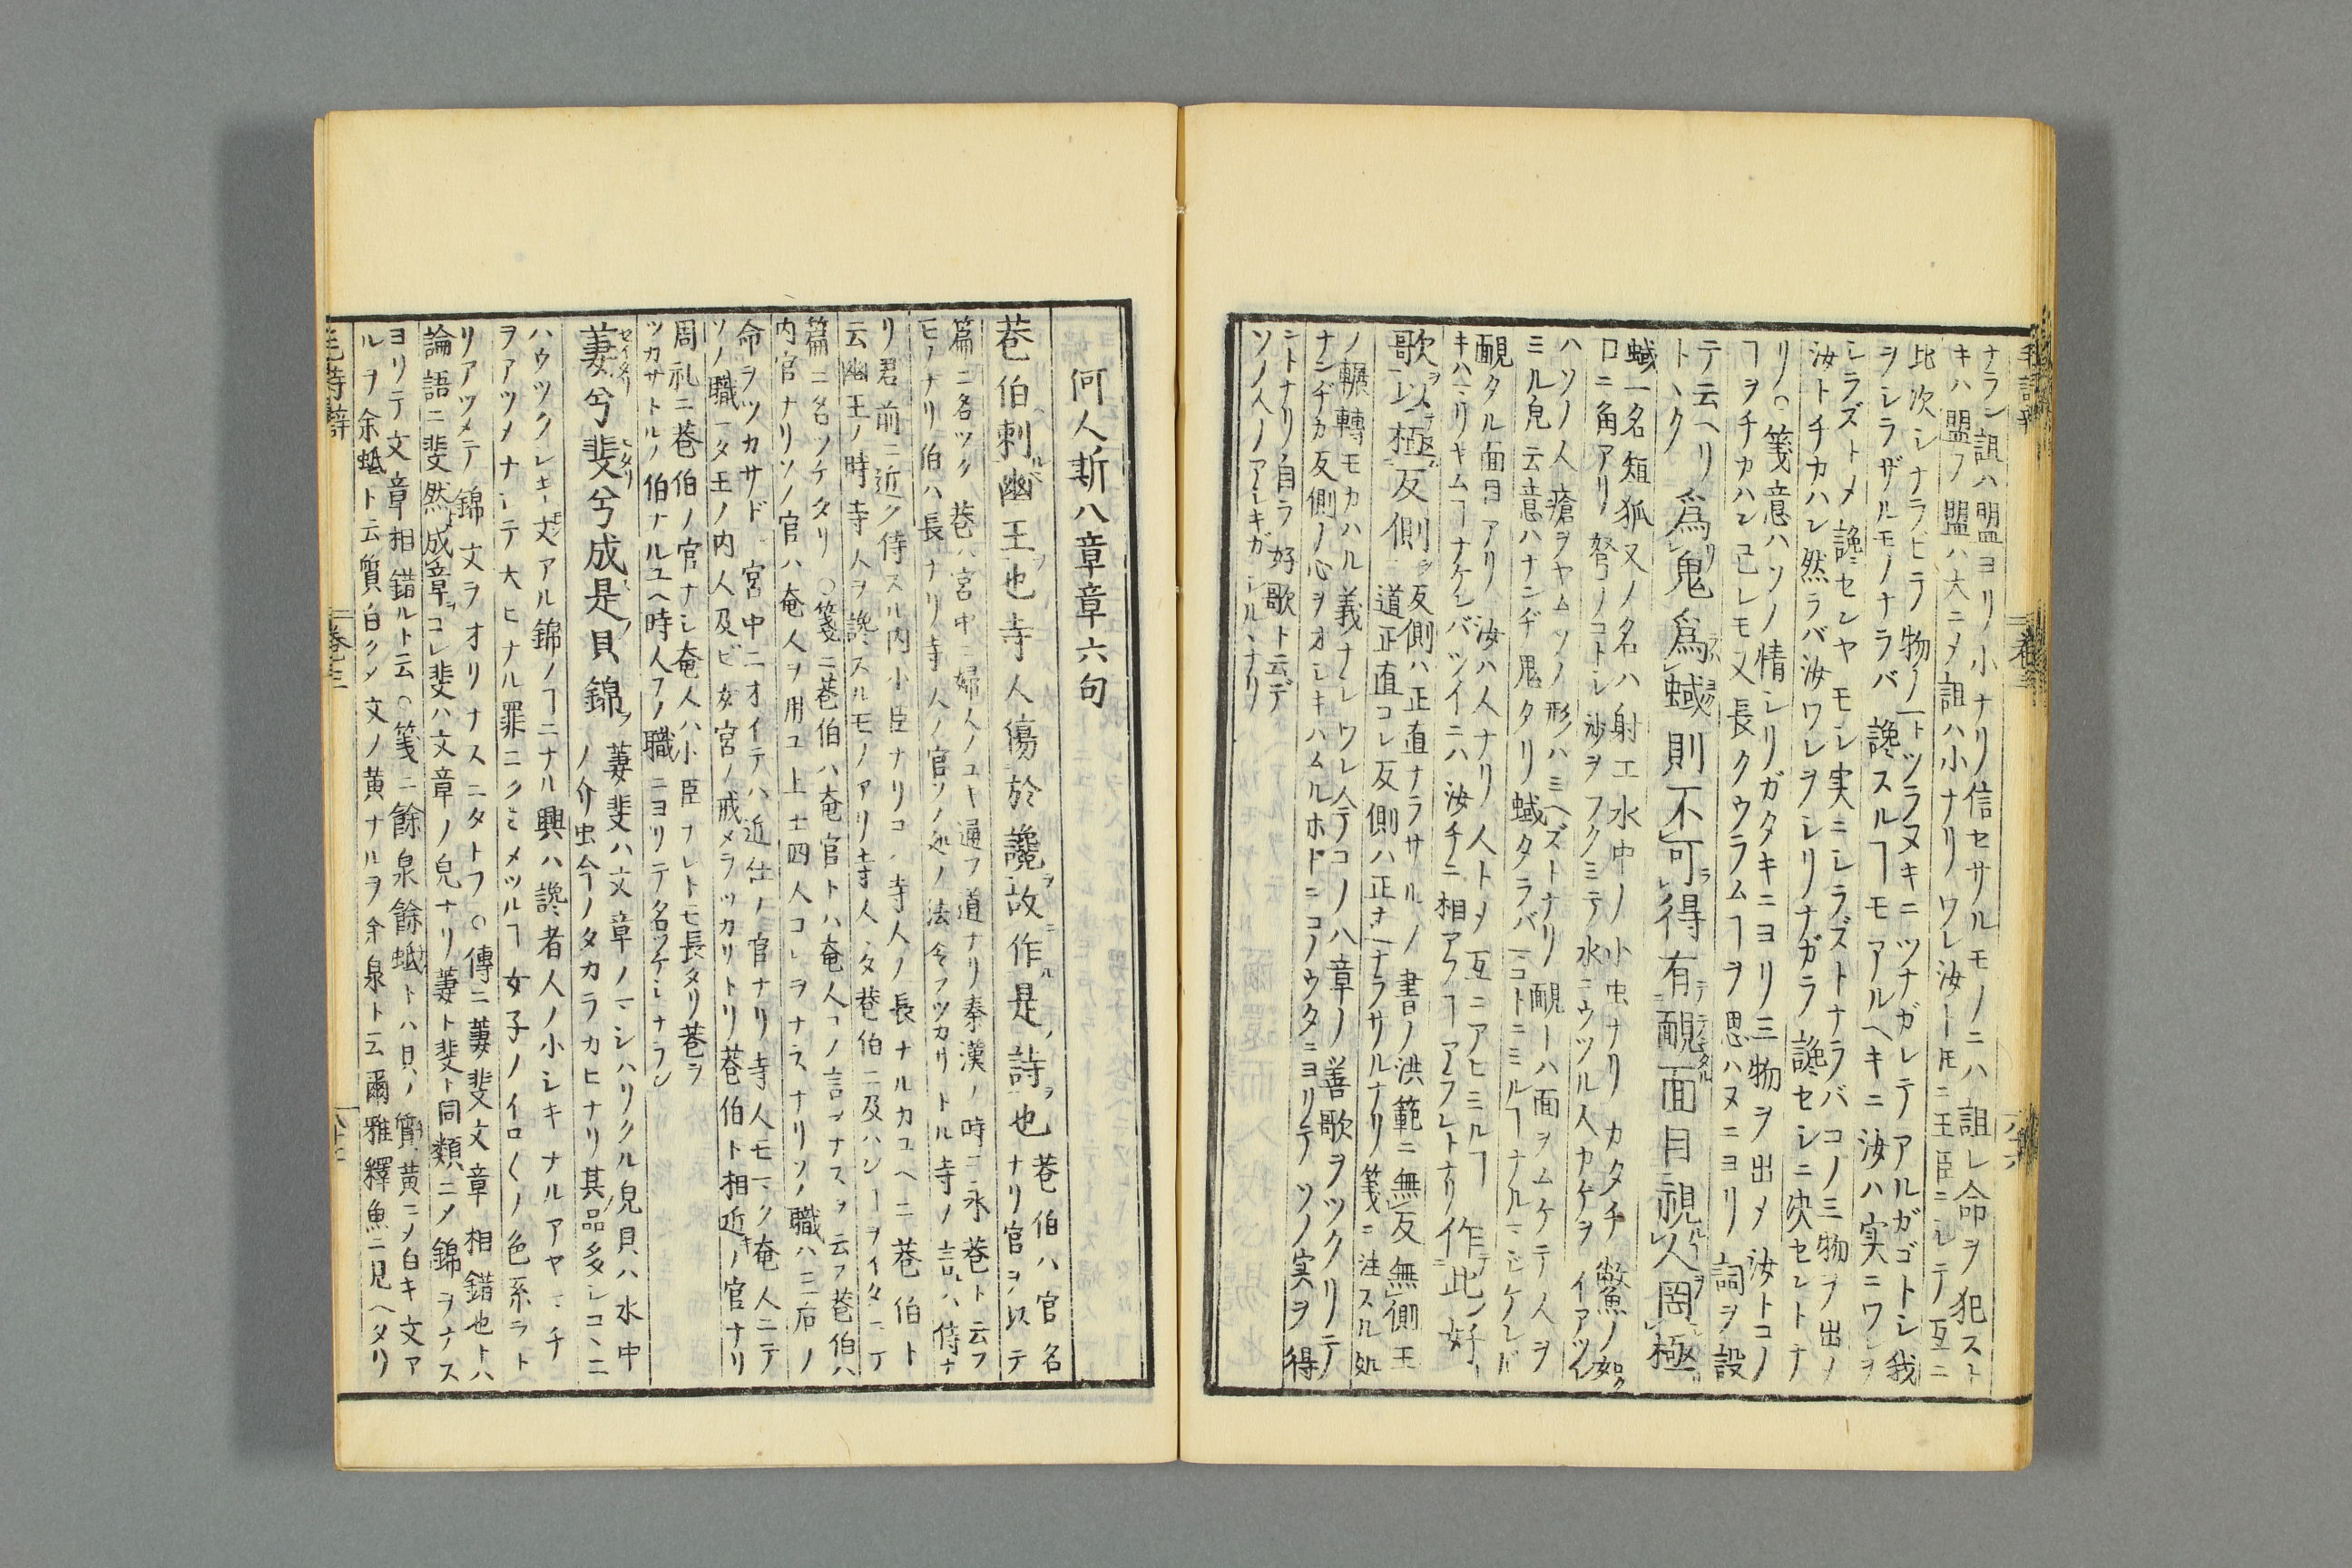 ナラン詛ハ盟ヨリノ小ナリノ信セサルモノニハ詛レ命ヲ犯スト
キハ盟フ盟ハ大ニメ詛ハ小ナリワレ汝トモニ王臣ニレテ互ニ
比次シナラビラ物ノ一トツラヌキニツナガレテアルガゴトシ我
ヲシラザルモノナラバ讒スルヿモアルヘキニ汝ハ実ニワレヲ
シラズトメ讒センヤモシ実ニシラズトナラバコノ三物ヲ出ノ
汝トチカハン然ラバ汝ワレヲシリナガラ讒セシニ决セントナ
リ○箋意ハソノ情シリガタキニヨリ三物ヲ出メ汝トコノ
ヿヲチカハン已レモ又長クウラムヿヲ思ハヌニヨリ詞ヲ設
テ云ヘリ
トヽク
爲鬼爲蜮則不可得有靦面目視人罔極
蜮一名短狐又ノ名ハ射工水中ノ小虫ナリカタチ鱉ノ如ク
口ニ角アリ弩ノコトシ沙ヲフクミテ水ニウツル人カゲヲイアツレ
ハソノ人瘡ヲヤムソノ形ハミヘズトナリ靦ーハ面ヲムケテ人ヲ
ミル皃云意ハナンヂ鬼タリ蜮タラバマコトニミルヿナルマジケレバ
靦タル面目アリ汝ハ人ナリ人トメ互ニアヒミルヿ
キハマリキムヿナケレバツイニハ汝チニ相アフヿアラントナリ
作此好
歌以極反側
反側ハ正直ナラサルノ書ノ洪範ニ無反無側王
道正直コレ反側ハ正直ナラサルナリ箋ニ注スル処
ノ輾轉モカハル義ナシワレ今コノ八章ノ善歌ヲツクリテ
ナンヂカ反側ノ心ヲオシキハムルホドニコノウタニヨリテソノ実ヲ得
シトナリ自ラ好歌ト云デ
ソノ人ノアシキガシルヽナリ
何人斯八章章六句
巷伯刺幽王也寺人傷於讒故作是詩也
巷伯ハ官名
ナリ官ヲ以テ
篇ニ名ツク巷ハ宮中ニ婦人ノユキ通フ道ナリ秦漢ノ時ニ永巷ト云フ
モノナリ伯ハ長ナリ寺人ノ官ソノ処ノ法令フツカサトル寺ノ言ハ侍ナ
リ君前ニ近ク侍スル内小臣ナリコノ寺人ノ長ナルカユヘニ巷伯ト
云幽王ノ時寺人ヲ讒スルモノアリ寺人ヽタ巷伯ニ及ハンーヲイタミテ
篇ニ名ツケタリ○箋ニ巷伯ハ奄官トハ奄人コノ言ヲナスヲ云フ巷伯ハ
内官ナリソノ官ハ奄人ヲ用ユ上士四人コレヲナスナリソノ職ハ王后ノ
命ヲツカサド宮中ニオイテハ近仕ノ官ナリ寺人モマタ奄人ニテ
ソノ職ータ王ノ内人及ビ女宮ノ戒メヲツカサトリ巷伯ト相近キノ官ナリ
周礼ニ巷伯ノ官ナシ奄人ハ小臣ナレトモ長タリ巷ヲ
ツカサトルノ伯ナルユヘ時人フノ職ニヨリテ名ツケシナラン
萋兮斐兮成是貝錦
萋斐ハ文章ノマシハリクル皃貝ハ水中
ノ介虫今ノタカラカヒナリ其品多シコヽニ
ハウツクシキ文アル錦ノヿニナル興ハ讒者人ノ小シキナルアヤマチ
ヲアツメナシテ大ヒナル罪ニクミメツルヿ女子ノイロ〱ノ色系ヲト
リアツメテ錦文ヲオリナスニタトフ○傳ニ萋斐文章相錯也トハ
論語ニ斐然成章コレ斐ハ文章ノ皃ナリ萋ト斐ト同類ニメ錦ヲナス
ヨリテ文章相錯ルト云○箋ニ餘泉餘蚳トハ貝ノ質黄ニメ白キ文ア
ルヲ余蚳ト云質白クメ文ノ黄ナルヲ余泉ト云爾雅釋魚ニ見ヘタリ
毛詩辞
卷十二